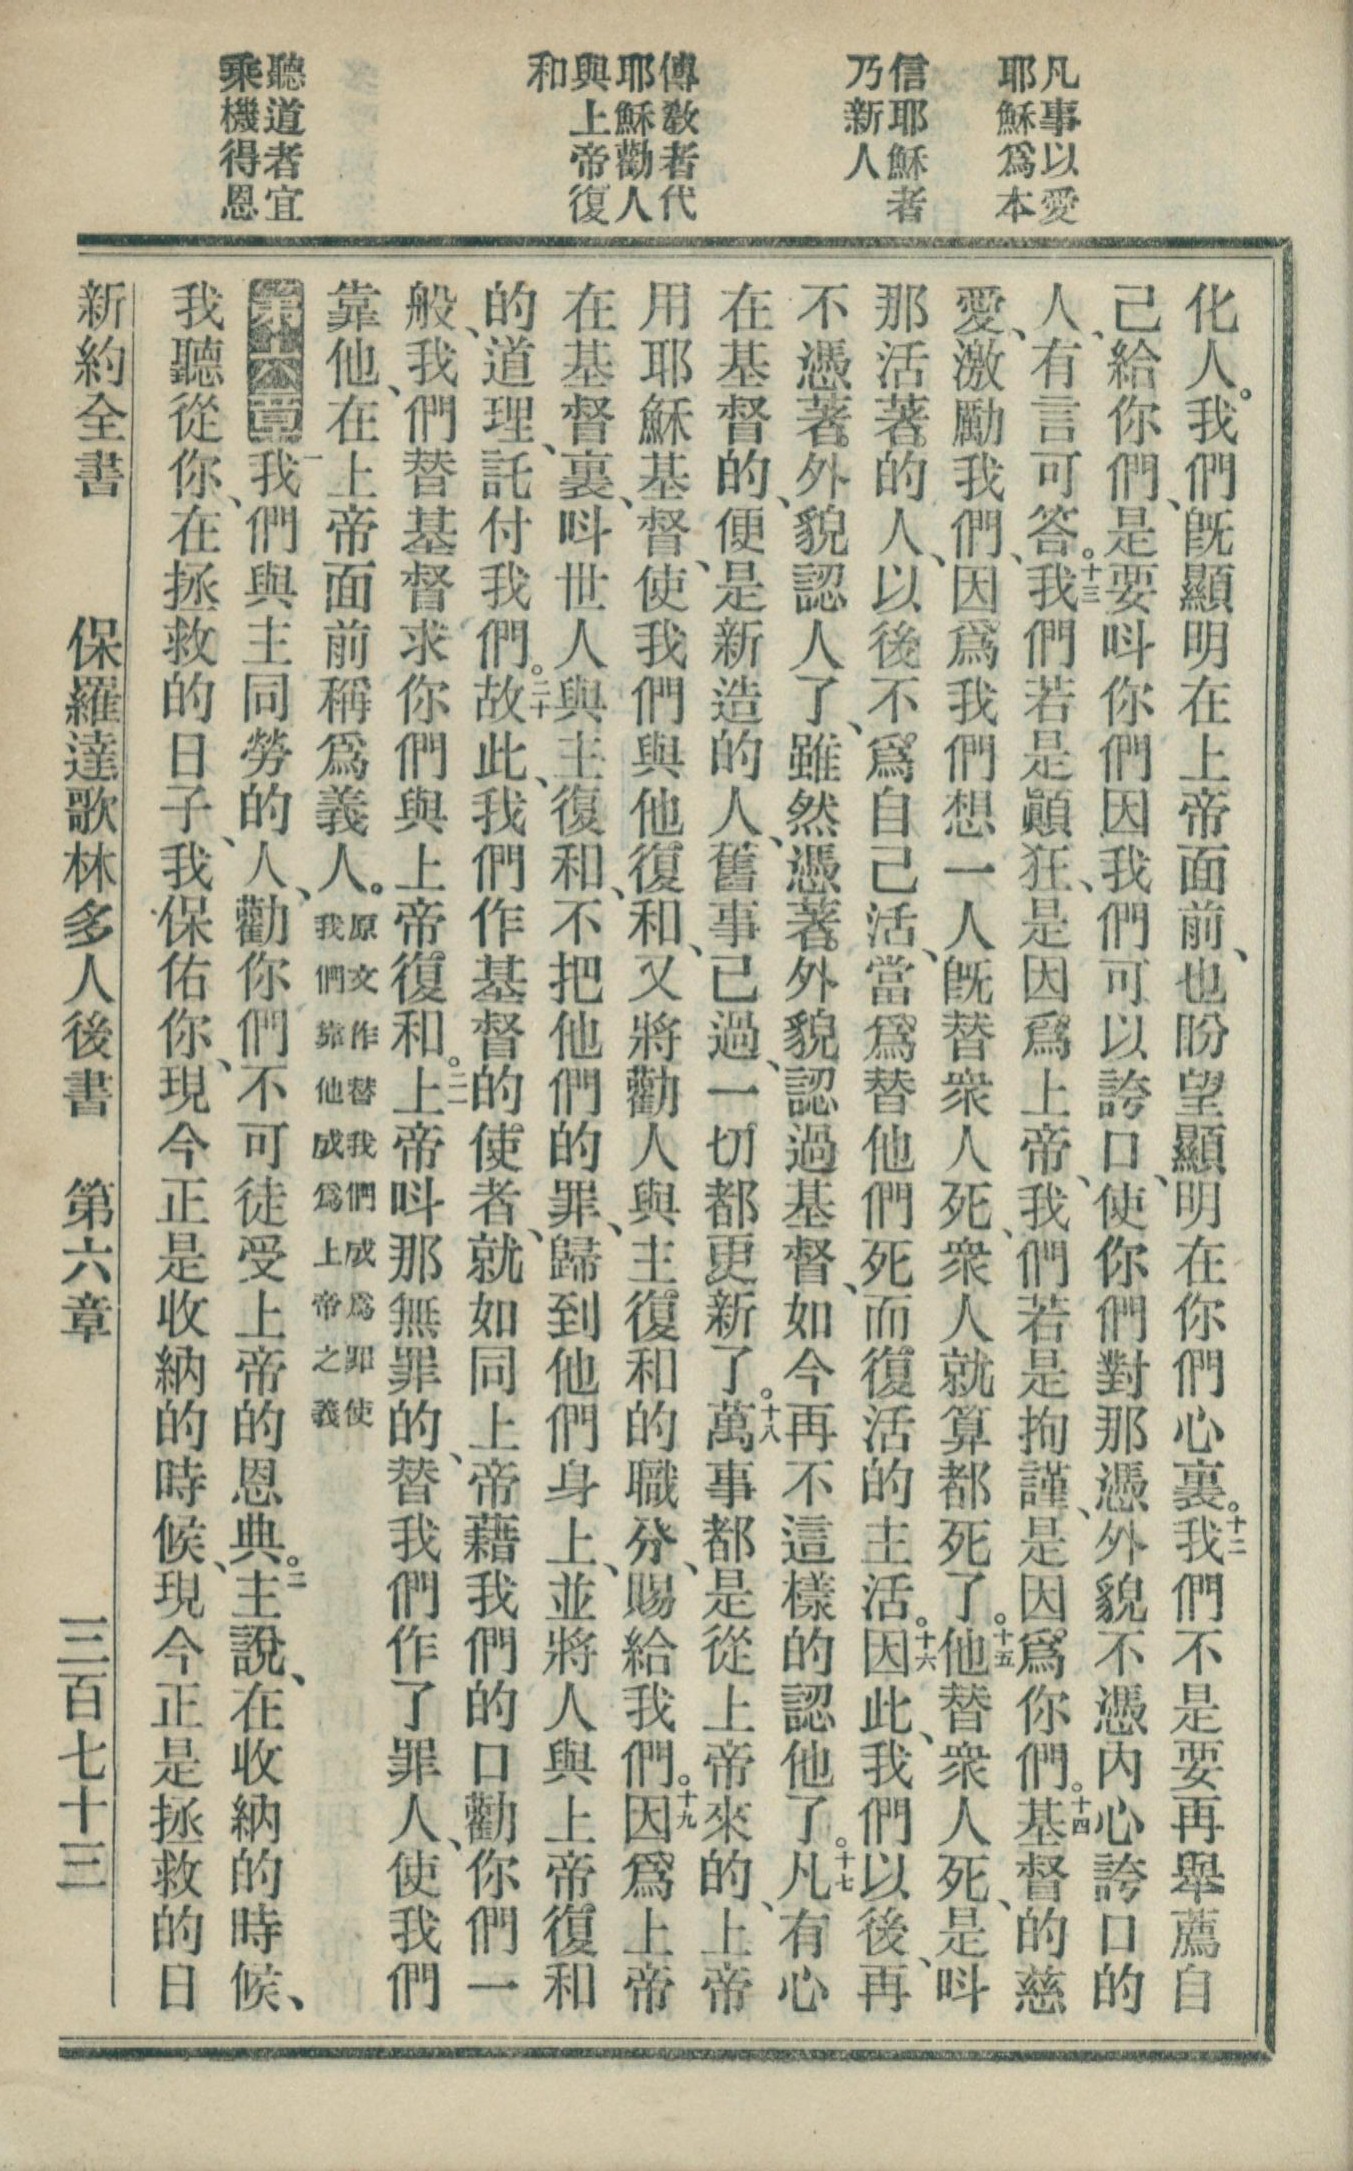 凡事以愛
耶穌爲本
信耶穌者
乃新人
傳敎者代
耶穌勸人
與上帝復
和
聽道者宜
乘機得恩
化人。我們旣顯明在上帝面前、也盼望顯明在你們心裏。十二我們不是要再舉薦自
己給你們、是要呌你們因我們可以誇口、使你們對那憑外貌不憑內心誇口的
人、有言可答。十三我們若是顚狂、是因爲上帝、我們若是拘謹、是因爲你們。十四基督的慈
愛、激勵我們、因爲我們想一人旣替衆人死、衆人就算都死了。十五他替衆人死、是呌
那活著的人、以後不爲自己活、當爲替他們死而復活的主活。十六因此、我們以後、再
不憑著外貌認人了、雖然憑著外貌認過基督、如今再不這樣的認他了。十七凡有心
在基督的、便是新造的人、舊事已過、一切都更新了。十八萬事都是從上帝來的、上帝
用耶穌基督、使我們與他復和、又將勸人與主復和的職分、賜給我們。十九因爲上帝
在基督裏、呌世人與主復和、不把他們的罪、歸到他們身上、並將人與上帝復和
的道理、託付我們。二十故此、我們作基督的使者、就如同上帝藉我們的口勸你們一
般、我們替基督求你們與上帝復和。二一上帝呌那無罪的、替我們作了罪人、使我們
靠他、在上帝面前稱爲義人。原文作替我們成爲罪使我們靠他成爲上帝之義
第六章一我們與主同勞的人、勸你們不可徒受上帝的恩典。二主說、在收納的時候、
我聽從你、在拯救的日子、我保佑你、現今正是收納的時候、現今正是拯救的日
新約全書 保羅達歌林多人後書 第六章 三百七十三